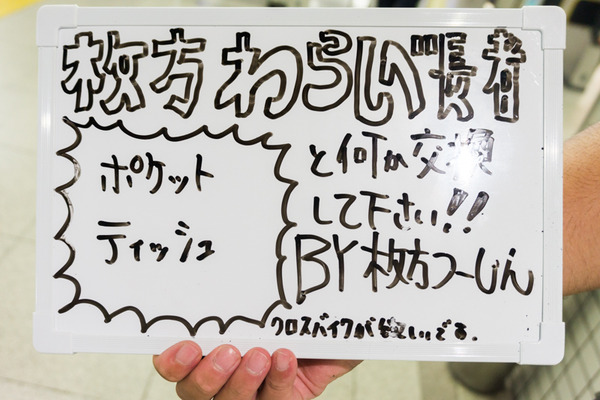 枚方わらい長者
ポケット
ティッシュ
と何か交換
して下さい!!
BY 枚方つーしん
クロスバイクが欲しいです。